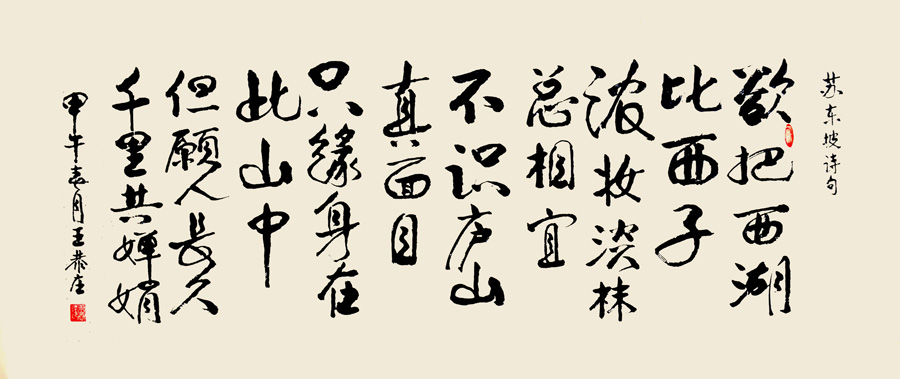 苏东坡诗句
欲把西湖
比西子
浓妆淡抹
总相宜
不识庐山
真面目
只緣身在
此山中
但願人長久
千里共婵娟
甲午春月王恭